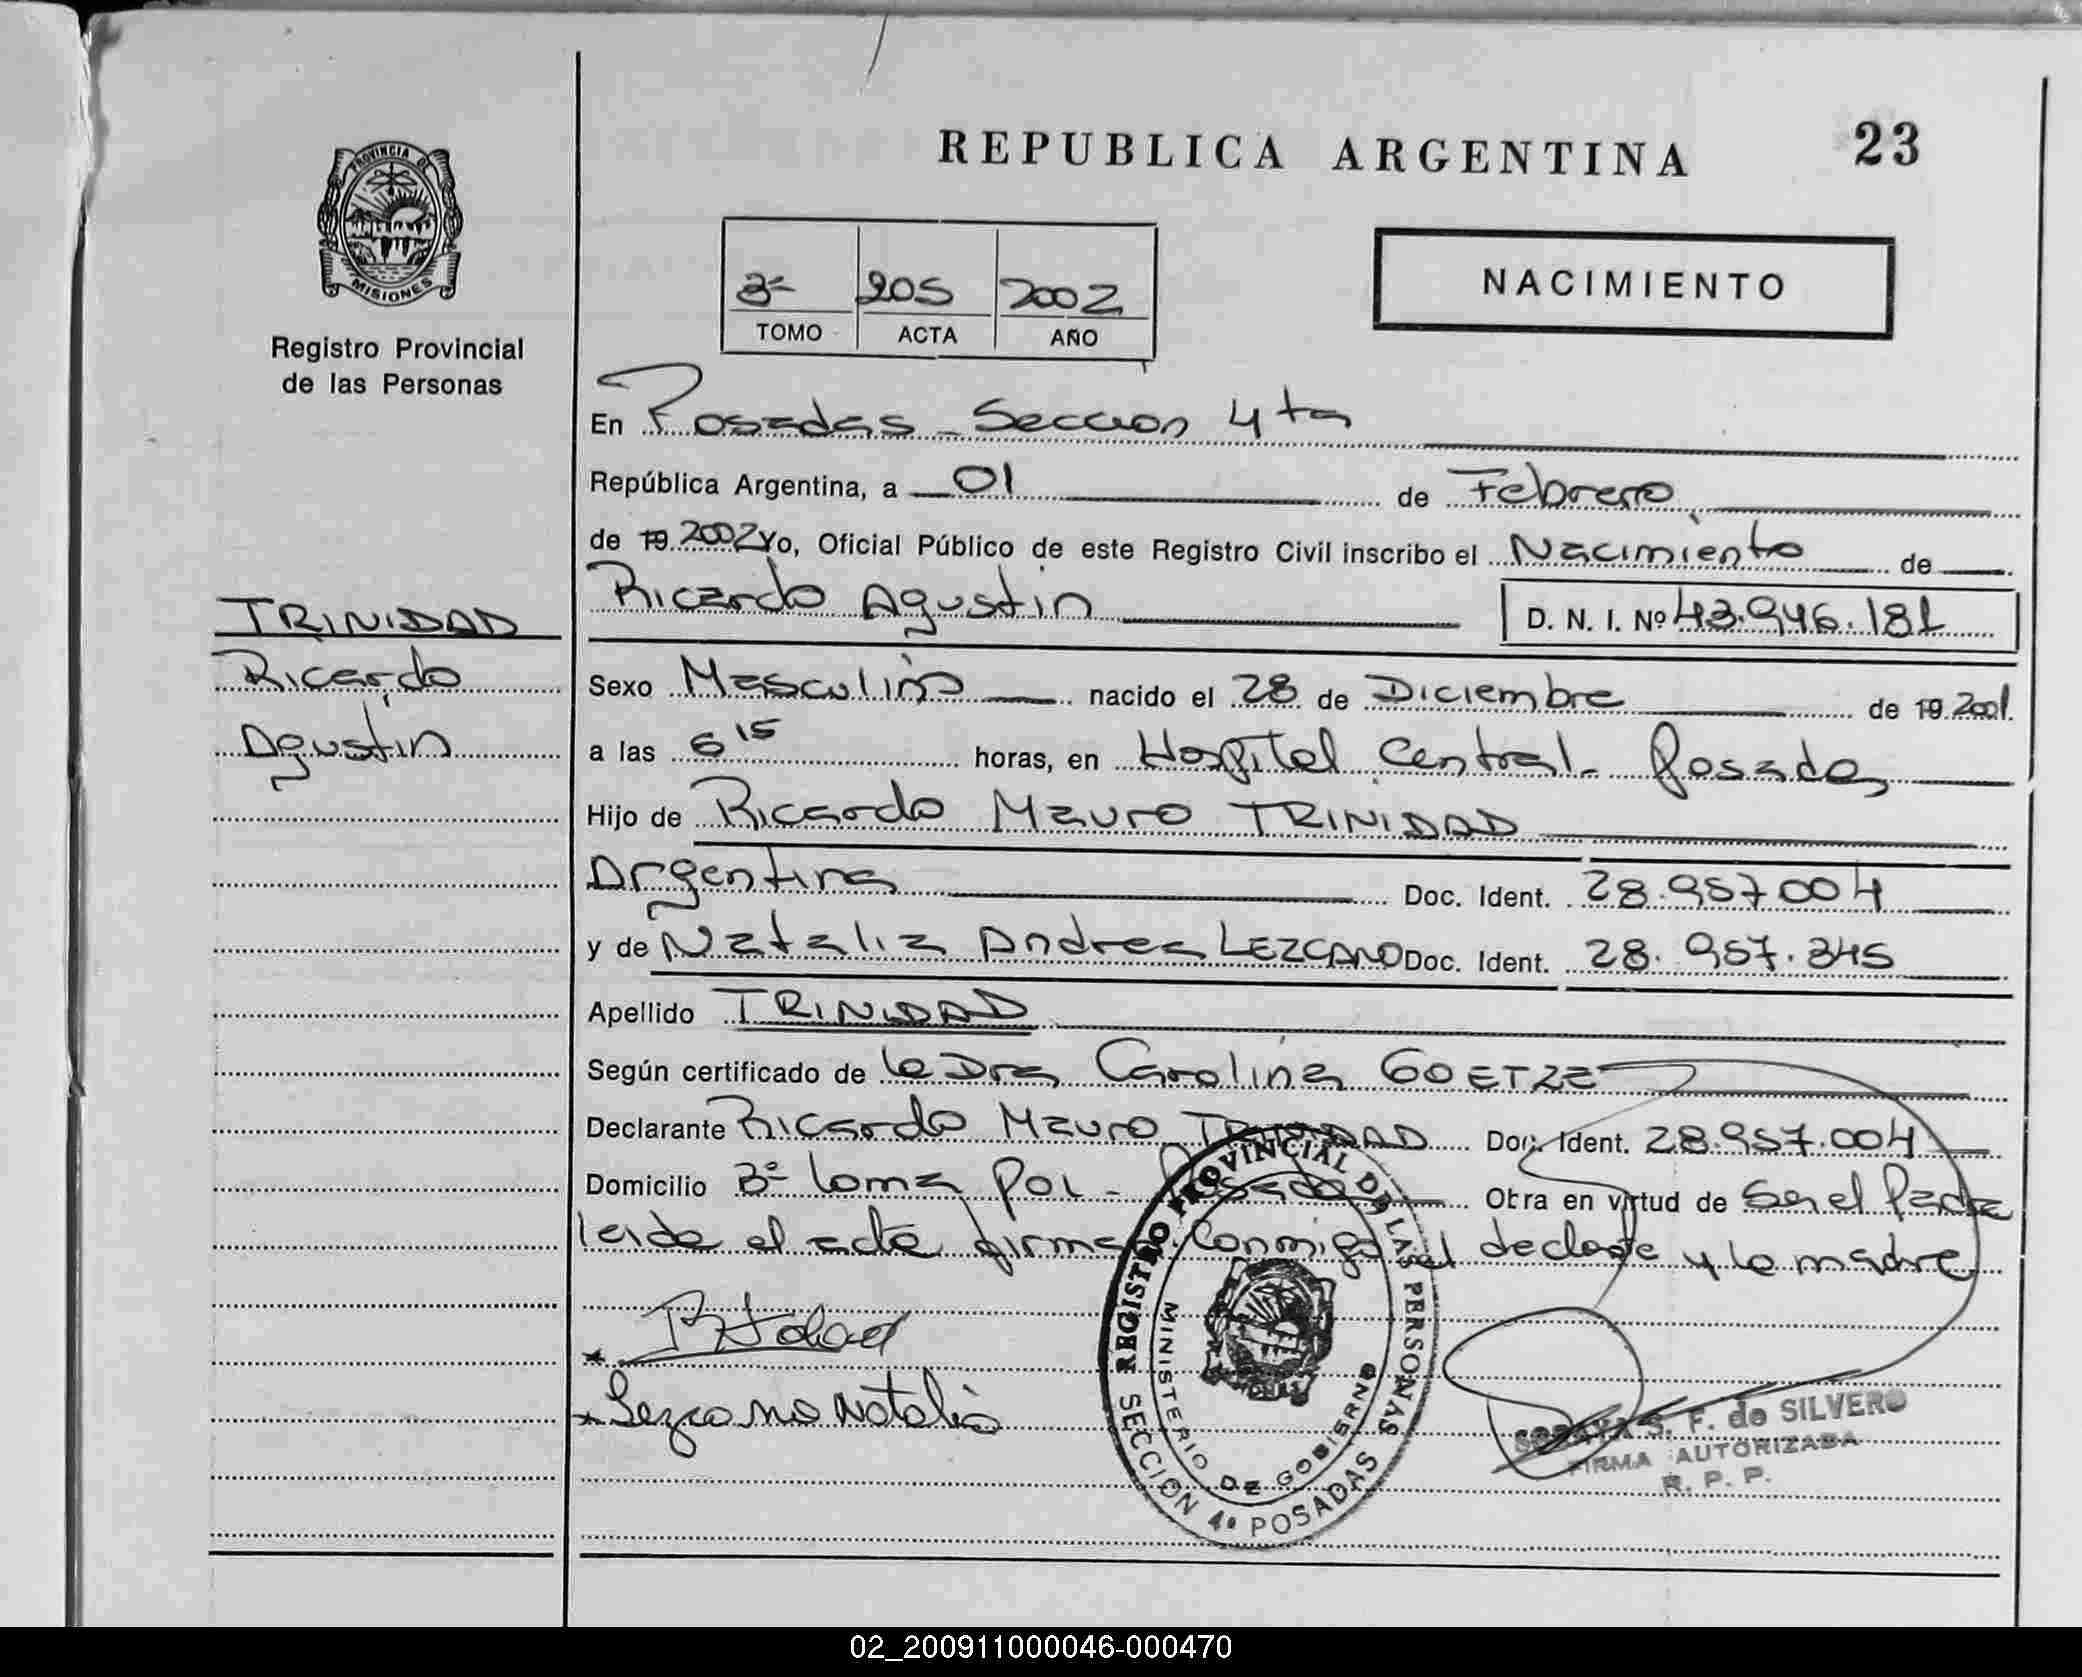 REPUBLICA ARGENTINA
23
PROVINCIA DE
MISIONES
Registro Provincial
de las Personas
3ª 205 2002
TOMO ACTA AÑO
NACIMIENTO
En Posadas - Seccion 4ta
República Argentina, a 01 de Febrero
de 19 2002 Yo, Oficial Público de este Registro Civil inscribo el Nacimiento de
Ricardo Agustin D. N. I. Nº 43.946.181
TRINIDAD
Ricardo
Agustin
Sexo Masculino nacido el 28 de Diciembre de 19 2001.
a las 6 15 horas, en Hospital Central - Posadas
Hijo de Ricardo Mauro TRINIDAD
Argentina Doc. Ident. 28.957 004
y de Natalia Andrea LEZCANO Doc. Ident. 28.957.345
Apellido TRINIDAD
Según certificado de la Dra Carolina GOETZE
Declarante Ricardo Mauro TRINIDAD Doc. Ident. 28.957.004
Domicilio 3º loma Pol - Posadas Obra en virtud de Ser el Padre
leida el acta firman conmigo el declarante y la madre
Lezcano Natalia
REGISTRO PROVINCIAL DE LAS PERSONAS
MINISTERIO DE GOBIERNO
SECCION 4ª POSADAS
SORAYA S. F. de SILVERO
FIRMA AUTORIZADA
R. P. P.
02_200911000046-000470